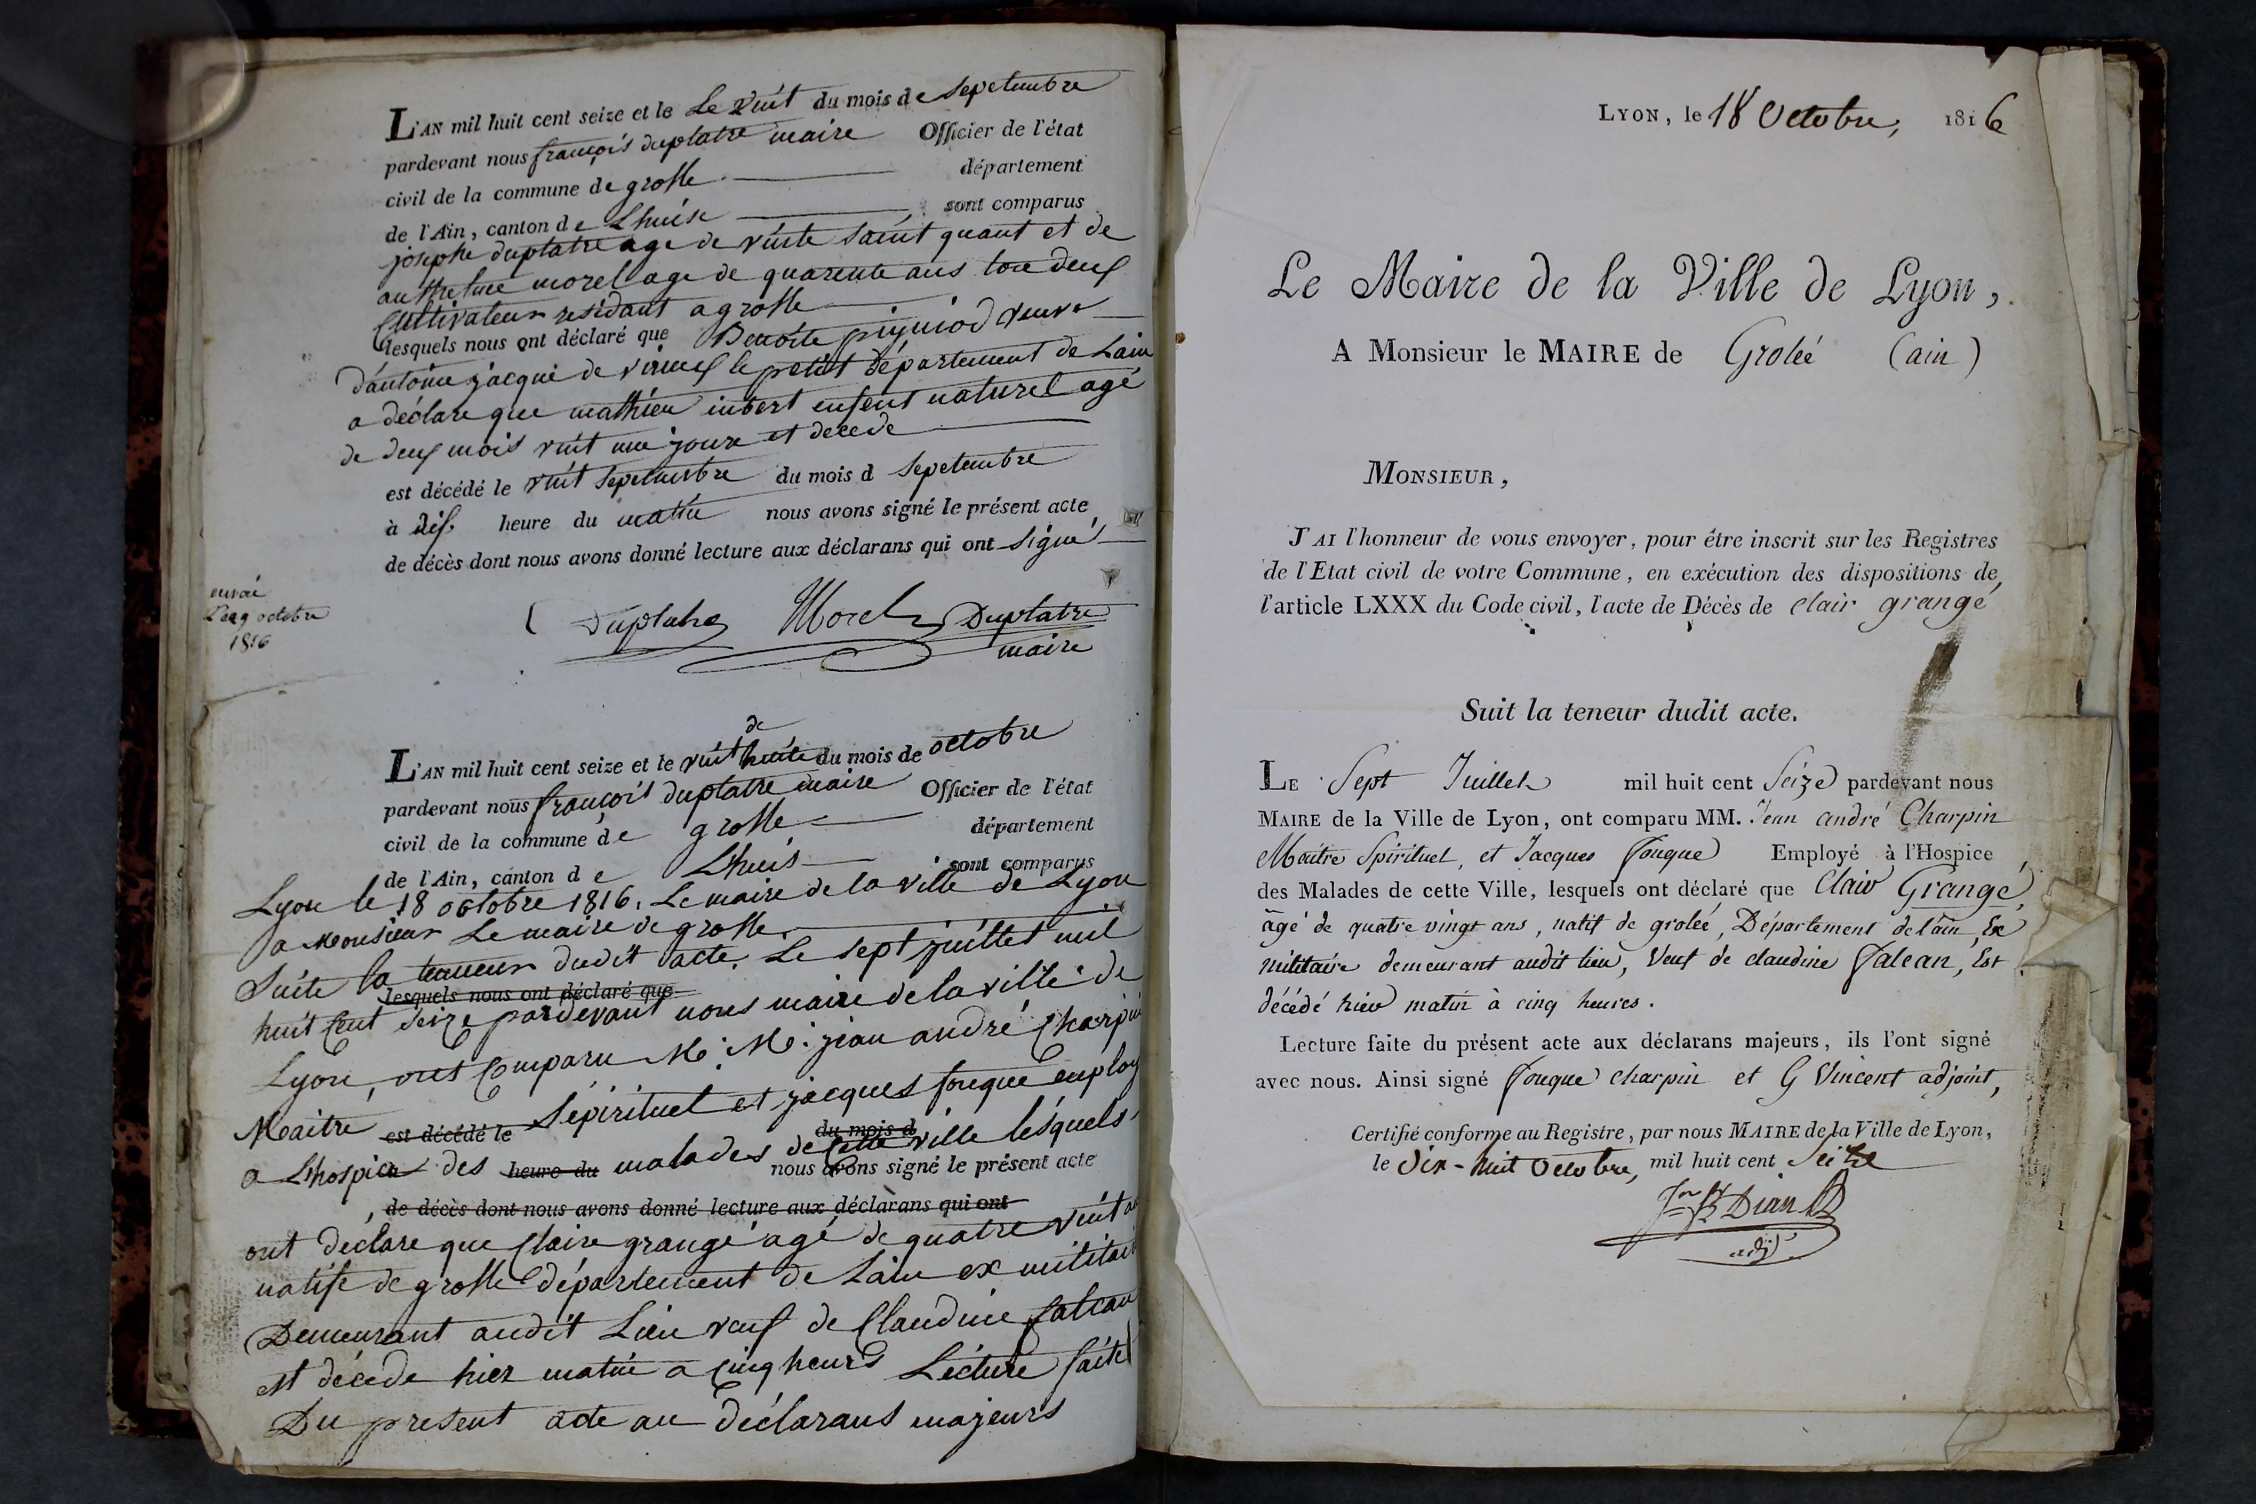 L'AN mil huit cent seize et le Le vuit du mois de sepetembre
pardevant nous françois duplatre maire Officier de l'état
civil de la commune de grolle département
de l'Ain, canton de Lhuis sont comparus
josephe duplatre age de vinte saint quant et de
anthelme morel age de quarente ans tou deux
Cultivateur residant a grolle
lesquels nous ont déclaré que Benoite pigniod veuve
d'antoine jacqui de virieux le petit département de Lain
a déclare que mathieu inbert enfent naturel agé
de deux mois vuit une joure et decede
est décédé le vuit sepetembre du mois d sepetembre
à dix heure du matin nous avons signé le présent acte
de décès dont nous avons donné lecture aux déclarans qui ont signé
Duplatre Morel Duplatre
maire
octobre
1816
de
L'AN mil huit cent seize et le vuit huite du mois de octobre
pardevant nous françois duplatre maire Officier de l'état
civil de la commune de grolle département
de l'Ain, canton de Lhuis sont comparus
Lyon le 18 octobre 1816. Le maire de la ville de Lyon
a Monsieur Le maire de grolle.
Suite la teneur dudit acte. Le sept juillet mil
lesquels nous ont déclaré que
huit Cent seize pardevant nous maire de la ville de
Lyon, ont Comparu M. M. jean andré Charpin
Maitre est décédé le Sépirituel et jacques fouque employ
du mois d
a Lhospice des heure du malades de Cette ville lesquels
nous avons signé le présent acte
de décès dont nous avons donné lecture aux déclarans qui ont
ont déclare que Claire grange agé de quatre vint an
natife de grolle département de Lain ex militair
Demeurant audit Lieu veuf de Claudine falcan
est décede hier matin a Cinq heurs Lecture faite
Du present acte au déclarans majeurs
LYON, le 18 Octobre, 1816
Le Maire de la Ville de Lyon,
A Monsieur le MAIRE de Groleé (ain)
MONSIEUR,
J'AI l'honneur de vous envoyer, pour être inscrit sur les Registres
de l'Etat civil de votre Commune, en exécution des dispositions de
l'article LXXX du Code civil, l'acte de Décès de Clair grange
Suit la teneur dudit acte.
LE Sept Juillet mil huit cent Seize pardevant nous
MAIRE de la Ville de Lyon, ont comparu MM. Jean andré Charpin
Maitre Spirituel, et Jacques Fouque Employé à l'Hospice
des Malades de cette Ville, lesquels ont déclaré que Clair Grange,
âgé de quatre vingt ans, natif de groleé, Département de l'ain, Ex
militaire demeurant audit lieu, Veuf de claudine Falcan, Est
décédé hier matin à cinq heures.
Lecture faite du présent acte aux déclarans majeurs, ils l'ont signé
avec nous. Ainsi signé Fouque Charpin et G Vincent adjoint,
Certifié conforme au Registre, par nous MAIRE de la Ville de Lyon,
le Dix-huit Octobre, mil huit cent Seize
adj.